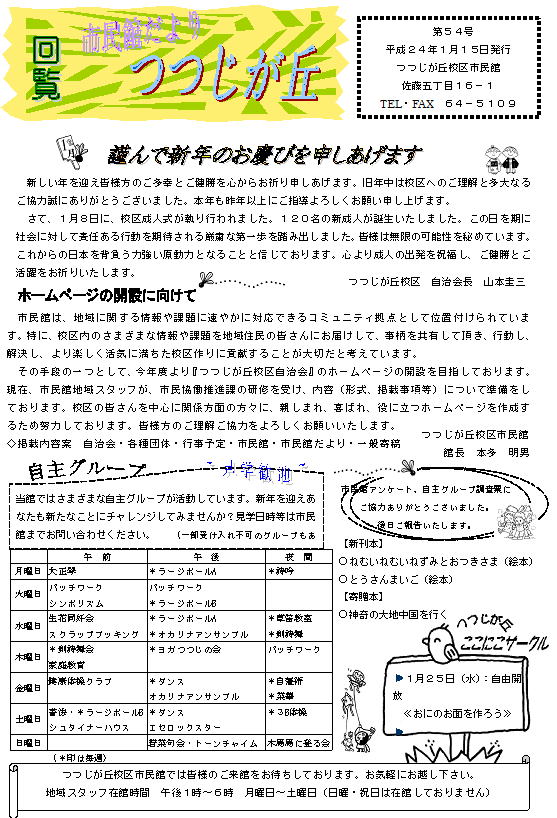 回覧
市民館だより
つつじが丘
第54号
平成24年1月15日発行
つつじが丘校区市民館
佐藤五丁目16-1
TEL・FAX 64-5109
謹んで新年のお慶びを申しあげます
新しい年を迎え皆様方のご多幸とご健勝を心からお祈り申しあげます。旧年中は校区へのご理解と多大なる
ご協力誠にありがとうございました。本年も昨年以上にご指導よろしくお願い申し上げます。
さて、1月8日に、校区成人式が執り行われました。120名の新成人が誕生いたしました。この日を期に
社会に対して責任ある行動を期待される厳粛な第一歩を踏み出しました。皆様は無限の可能性を秘めています。
これからの日本を背負う力強い原動力となることと信じております。心より成人の出発を祝福し、ご健勝とご
活躍をお祈りいたします。
つつじが丘校区 自治会長 山本圭三
ホームページの開設に向けて
市民館は、地域に関する情報や課題に速やかに対応できるコミュニティ拠点として位置付けられていま
す。特に、校区内のさまざまな情報や課題を地域住民の皆さんにお届けして、事柄を共有して頂き、行動し、
解決し、より楽しく活気に満ちた校区作りに貢献することが大切だと考えています。
その手段の一つとして、今年度より『つつじが丘校区自治会』のホームページの開設を目指しております。
現在、市民館地域スタッフが、市民協働推進課の研修を受け、内容（形式、掲載事項等）について準備をし
ております。校区の皆さんを中心に関係方面の方々に、親しまれ、喜ばれ、役に立つホームページを作成す
るため努力しております。皆様方のご理解ご協力をよろしくお願いいたします。
つつじが丘校区市民館
◇掲載内容案 自治会・各種団体・行事予定・市民館・市民館だより・一般寄稿
館長 本多 明男
自主グループ
~見学歓迎~
当館ではさまざまな自主グループが活動しています。新年を迎えあ
なたも新たなことにチャレンジしてみませんか？見学日時等は市民
館までお問い合わせください。 （一部受け入れ不可のグループもあ
市民館アンケート、自主グループ調査票に
ご協力ありがとうございました。
後日ご報告いたします。
午前 午後 夜間
月曜日 大正琴 *ラージボールA *詩吟
火曜日 パッチワーク パッチワーク
シンボリズム *ラージボールB
水曜日 生花同好会 *ラージボールA
スクラップブッキング *オカリナアンサンブル *剣詩舞
木曜日 *剣詩舞会 *ヨガつつじの会 パッチワーク
家庭教育
金曜日 健康体操クラブ *ダンス *自彊術
オカリナアンサンブル *菜華
土曜日 書道・*ラージボールB *ダンス *3B体操
シュタイナーハウス エセロックスター
日曜日 若菜句会・トーンチャイム 木馬馬に登る会
（*印は毎週）
【新刊本】
○ねむいねむいねずみとおつきさま（絵本）
○とうさんまいご（絵本）
【寄贈本】
○神奇の大地中国を行く
つつじが丘
にこにこサークル
1月25日（水）：自由開
放
≪おにのお面を作ろう≫
つつじが丘校区市民館では皆様のご来館をお待ちしております。お気軽にお越し下さい。
地域スタッフ在館時間 午後1時～6時 月曜日～土曜日（日曜・祝日は在館しておりません）